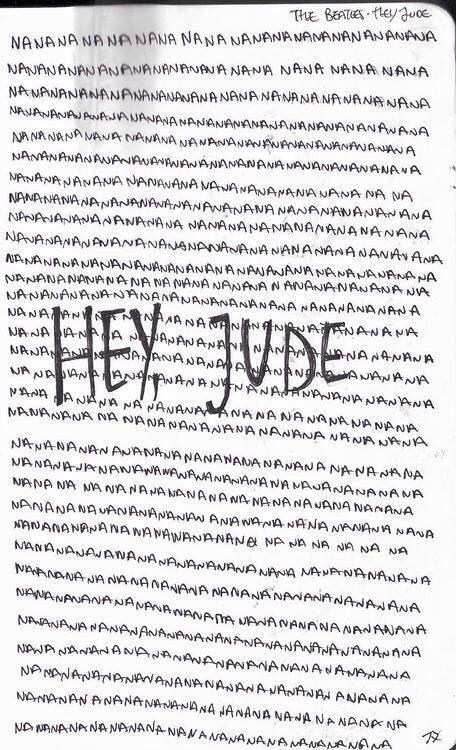 THE BEATLES - HEY JUDE
NANANA NANANA NANA NANA NANANANANANANANANANA
NANANANANANANANANANANANA NANA NANA NANA NANA
NANANANANANANANANANANANA NANANANANANANANANA
NANANANANANANANANANANANANANANANANANANANANANA
NANANANANANA NANANANANANANANANANANANANANANA
NANANANANANANANANANANANANANANANANANANANANA
NANANANANANA NANANANANANANANANANANANA NA NA
NANANANANANANANANANANANANANANANANANANANANANA
NANANANANANANANANANA NANANANANANANANANANANANA
NANANANANANANANANANANANANANANANANANANANANANANA
NANANANANANANANANANANANANANANANANANANANANANANA
NANANANANANANA NANANANANANANA NANANANANANANANA
HEY, JUDE
NANANANANANANANANANANANANANANANA NANANANANA
NANANA NA NANANANANANANANANANANANANANANANA
NANANANANANANANANANANANANANANANANANANANANA
NANANANANANANANANANANANANANANANANANANANANA
NANANANANANANANANANANANANA NA NA NA NA NA
NANANANANANANANANANANANANANA NANANANANANANA
NANANANANANANANANANANANANANANANANANANANANA
NANANANANANANANANANANANANANANANANANANANANA
NANANANANANANANANANANANANANANANANANANANANA
NANANANANANANANANANANANANANANANANANANANANA
NANANANANANANANANANANANANANANANA NANANANA
NANANANANANANANANANANANANANANANANANANANA
NANANANANANANANANANANANANANANANANANANANA